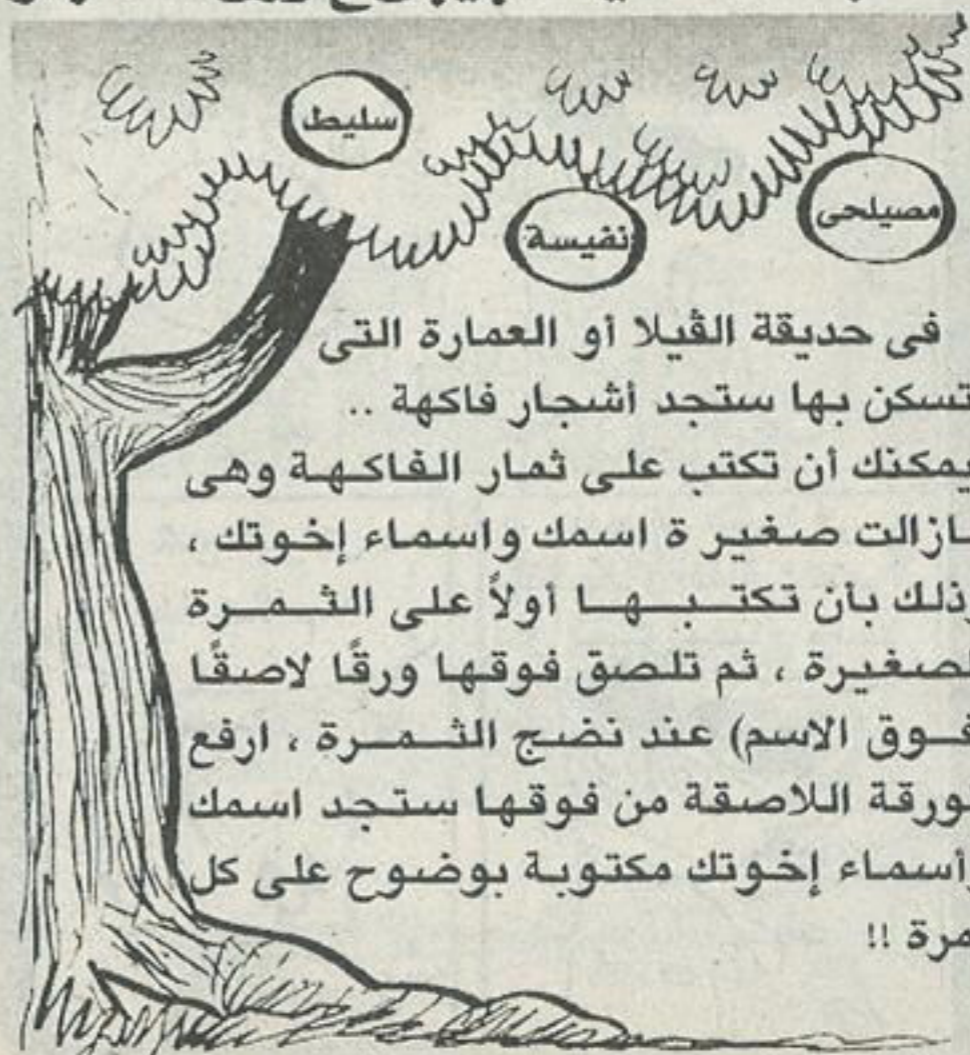 سليط
نفيسة
مصيلحى
فى حديقة الڤيلا أو العمارة التى
تسكن بها ستجد أشجار فاكهة ..
يمكنك أن تكتب على ثمار الفاكهة وهى
ـازالت صغير ة اسمك واسماء إخوتك ،
ذلك بأن تكتبها أولاً على الثمرة
لصغيرة ، ثم تلصق فوقها ورقًا لاصقًا
فوق الاسم) عند نضج الثمرة ، ارفع
لورقة اللاصقة من فوقها ستجد اسمك
أسماء إخوتك مكتوبة بوضوح على كل
مرة !!